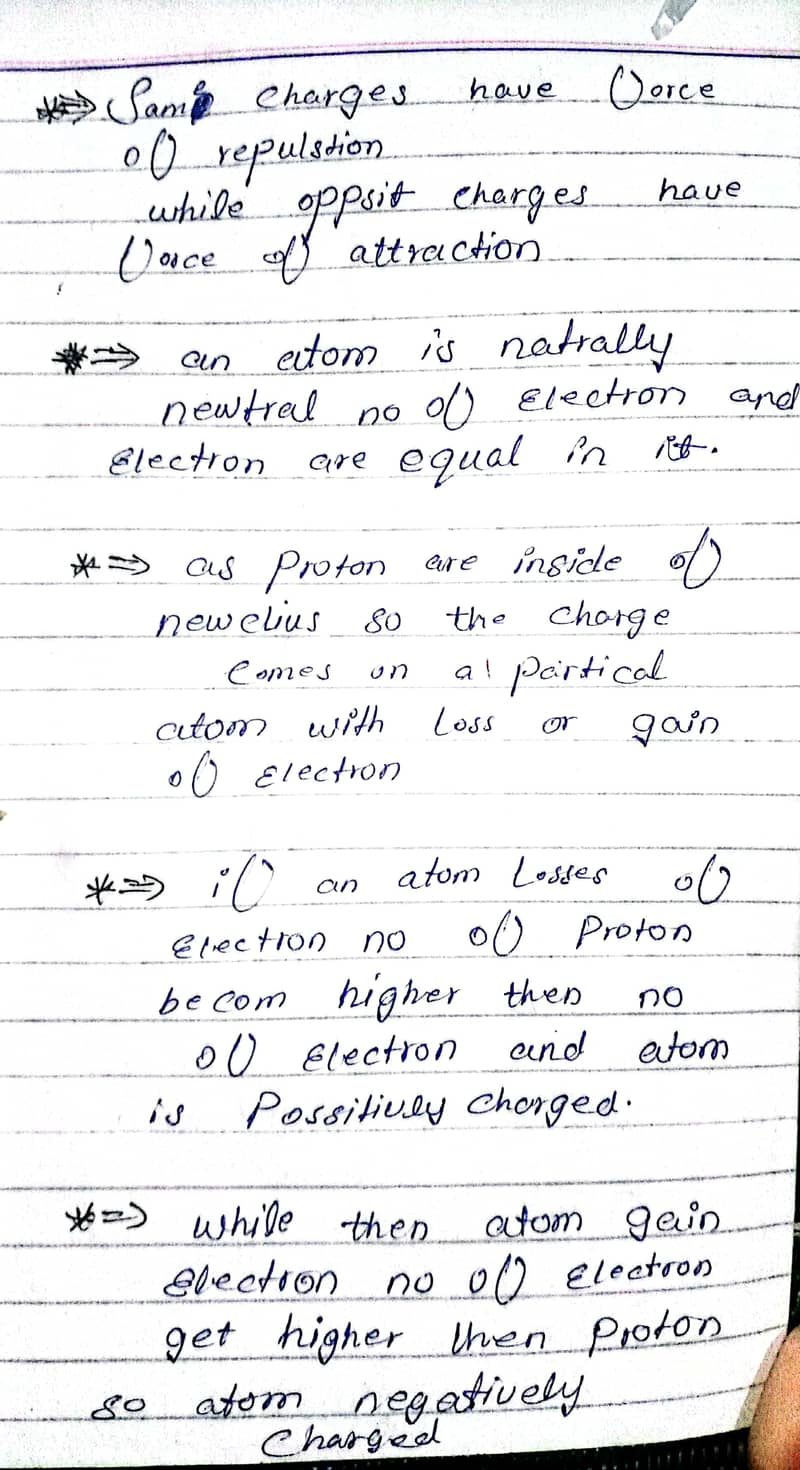 *⇒ Same charges have force
of repulstion
while oppsit charges have
force of attraction
*⇒ an atom is natrally
newtral no of Electron and
Electron are equal in it.
*⇒ as Proton are inside of
newclius so the charge
comes on a partical
atom with Loss or gain
of Electron
*⇒ if an atom Losses of
Electron no of Proton
becom higher then no
of Electron and atom
is Possitively charged.
*⇒ while then atom gain
Electron no of Electron
get higher then Proton
so atom negatively
Charged